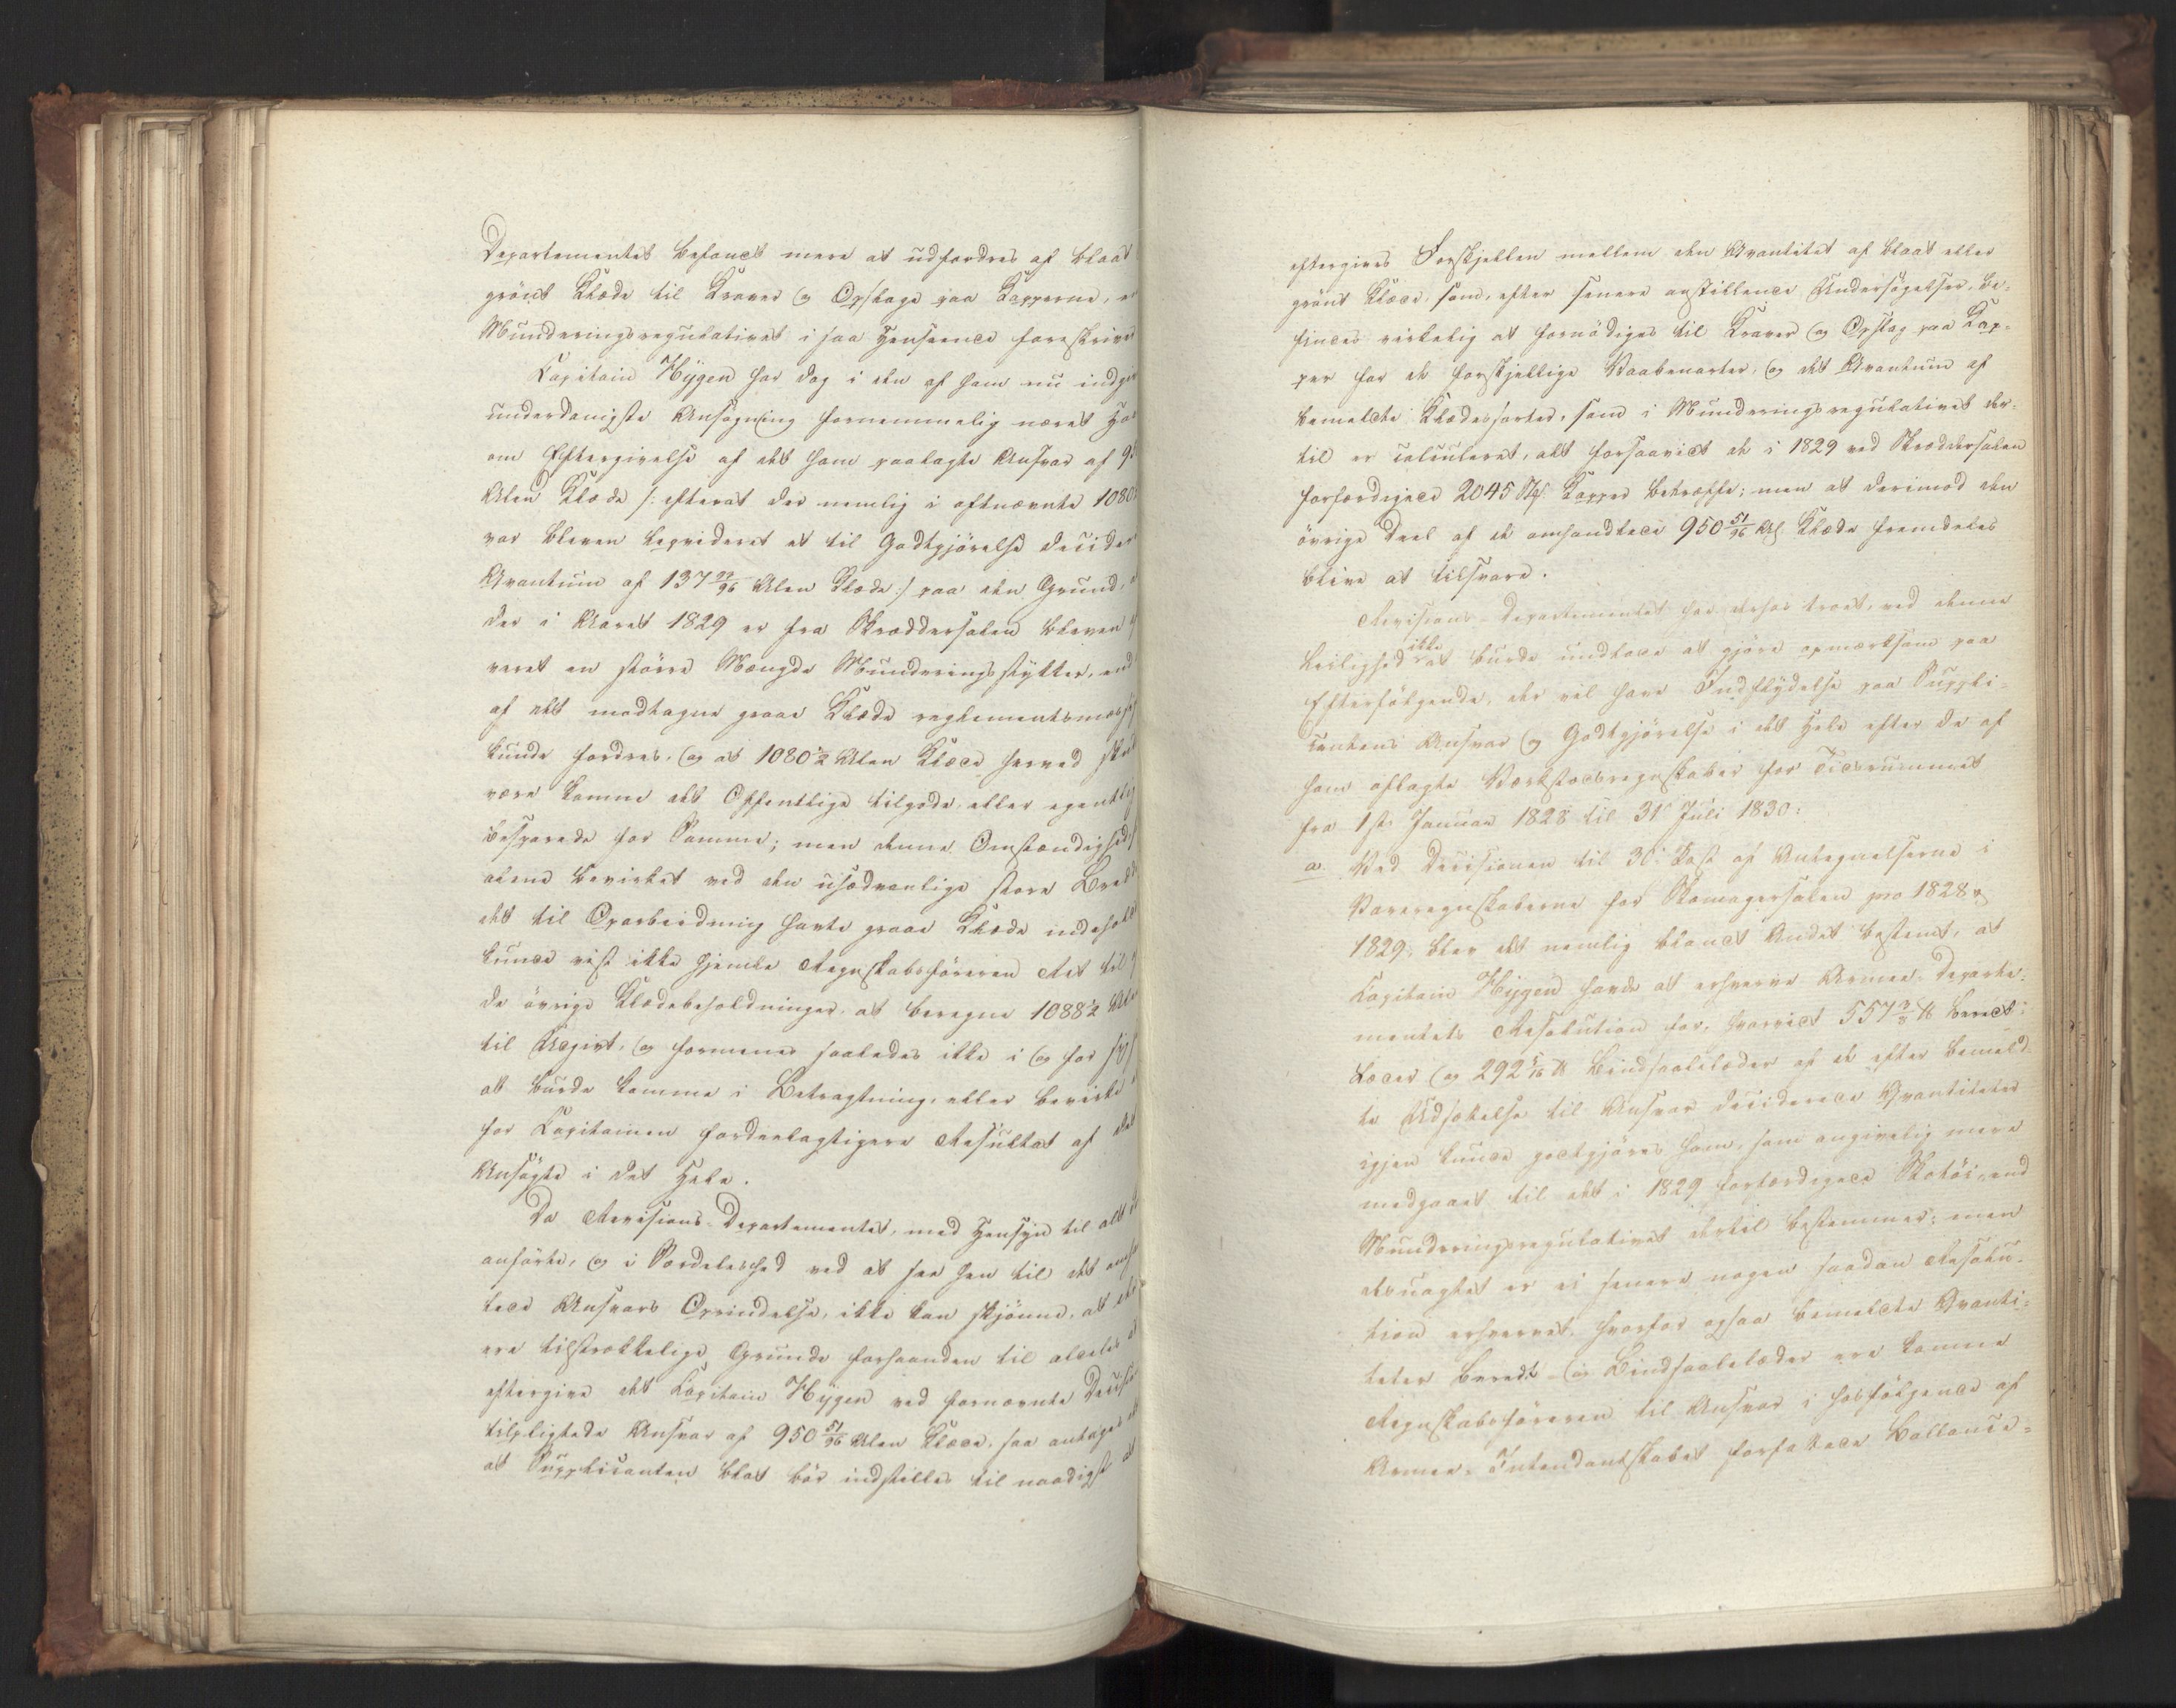 Departementet befandt mere at udfordres af blaat
grönt Klæde til Kraver og Opslage paa Kapperne, en
Munderingsregulativet i saa Henseende foreskriver
Capitain Hÿgen har dog i den af ham nu indgiv
underdanigste Ansøgning fornemmelig næret Ha
om Eftergivelse af det ham paalagte Ansvar af 95
Alen Klæde /: efterat der nemlig i oftnævnte 1080
var bleven liqvideret et til Godtgjörelse decider
Qvantum af 137 99/96 Alen Klæde :/ paa den Grund,
der i Aaret 1829 er fra Skræddersalen bleven
veret en större Mængde Munderingsstykker, end
af det modtagne graae Klæde reglementsmæssi
kunde fordres, og at 1080 1/2 Alen Klæde herved sku
være komne det Offentlige tilgode, eller egentlig
besparede for Samme; men denne Omstændighed,
alene bevirket ved den usædvanlige store Bredde
det til Oparbeidning havte graae Klæde indeholdt
kunde vist ikke hjemle Regnskabsföreren Ret til
de övrige Klædebeholdninger, at beregne 1088 1/2 Ale
til Udgivt, og formenes saaledes ikke i og for sig
at burde komme i Betragtning, eller bevirke
for Capitainen fordeelagtigere Resultat af det
Ansögte i det Hele.
Da Revisions-Departementet, med Hensyn til alt
anförte, og i Særdeleshed ved at see hen til det omh
lede Ansvars Oprindelse, ikke kan skjönne, at der
ere tilstrækkelige Grunde forhaanden til aldeles
eftergive det Capitain Hÿgen ved fornævnte Decisi
tilpligtede Ansvar af 950 51/96 Alen Klæde, saa antages
at Supplicanten blot bör indstilles til naadigst
eftergives Forskjellen mellem den Qvantitet af blaat eller
grönt Klæde, som, efter senere anstillede Undersögelser, be-
findes virkelig at fornödiges til Kraver og Opslag paa Kap-
per for de forskjellige Vaabenarter, og det Qvantum af
bemeldte Klædessorter, som i Munderingsregulativet der-
til er calculeret, alt forsaavidt de i 1829 ved Skræddersalen
forfærdigede 2045 Stk. Kapper betræffe; men at derimod den
övrige Deel af de omhandlede 950 51/96 Al. Klæde fremdeles
blive at tilsvare.
Revisions-Departementet har derhos troet, ved denne
Leilighed ikke at burde undlade at gjöre opmærksom paa
Efterfölgende, der vil have Indflydelse paa Suppli-
cantens Ansvar og Godtgjörelse i det Hele efter de af
ham aflagte Værkstedsregnskaber for Tidsrummet
fra 1ste Januar 1828 til 31 Juli 1830:
a. Ved Decisionen til 30: Post af Antegnelserne i
Vareregnskaberne for Skomagersalen pro 1828 &
1829, blev det nemlig blandt Andet bestemt, at
Capitain Hÿgen havde at erhverve Armee-Departe-
mentets Resolution for, hvorvidt 557 3/8 ℔ beredt
Læder og 292 5/16 ℔ Bindsaalelæder af de efter bemeld-
te Udsættelse til Ansvar deciderede Qvantiteter
igjen kunde godtgjöres ham, som angivelig mere
medgaaet til det i 1829 forfærdigede Skotöi, end
Munderingsregulativet dertil bestemmer; men
desuagtet er ei senere nogen saadan Resolu-
tion erhvervet, hvorfor ogsaa bemeldte Qvanti-
teter beredt- og Bindsaalelæder ere komne
Regnskabsföreren til Ansvar i Fölge af
Armee-Intendantskabet forfattede Ballance-